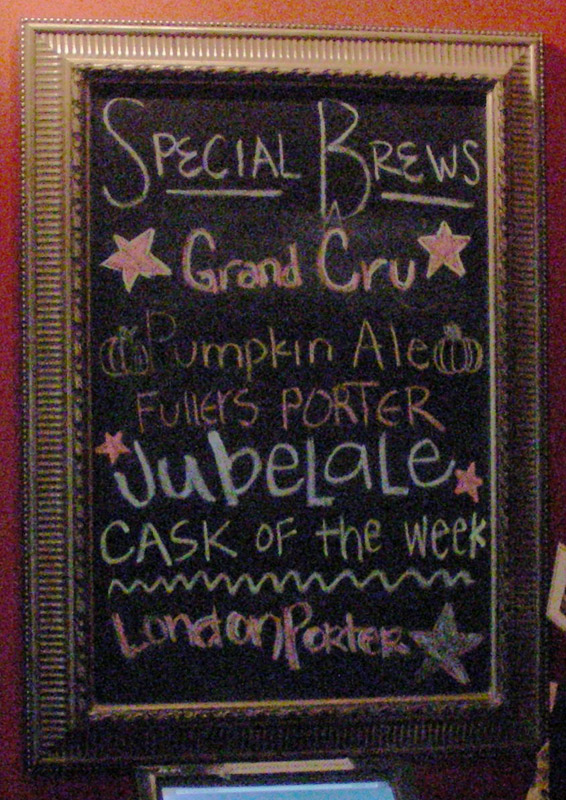 SPECIAL BREWS
Grand Cru
Pumpkin Ale
Fullers PORTER
JubeLaLe
CASK OF the week
London Porter